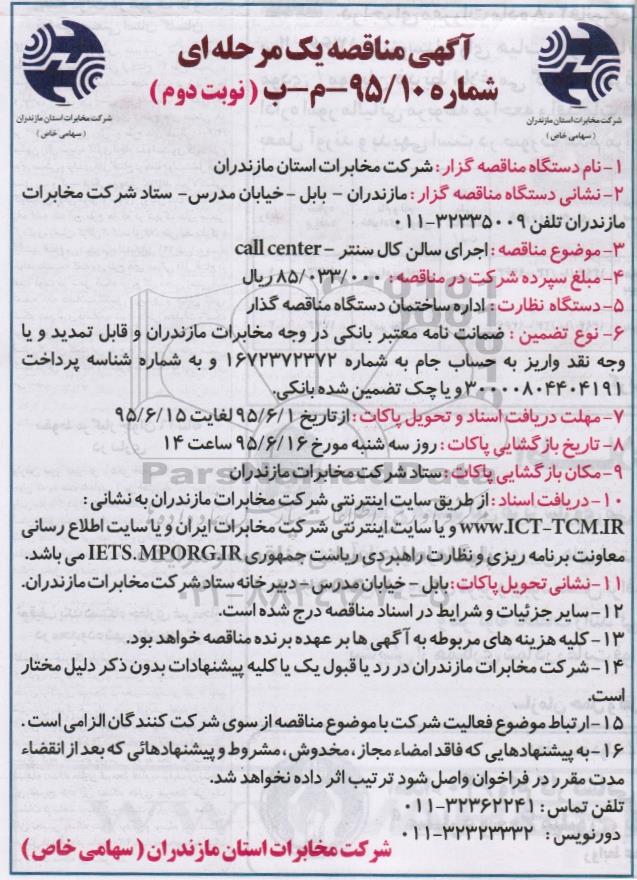 آگهی مناقصه یک مرحله ای
شماره ۹۵/۱۰-م-ب (نوبت دوم)
شرکت مخابرات استان مازندران
(سهامی خاص)
شرکت مخابرات استان مازندران
(سهامی خاص)
۱- نام دستگاه مناقصه گزار: شرکت مخابرات استان مازندران
۲- نشانی دستگاه مناقصه گزار: مازندران - بابل - خیابان مدرس- ستاد شرکت مخابرات
مازندران تلفن ۳۲۳۳۵۰۰۹-۰۱۱
۳- موضوع مناقصه: اجرای سالن کال سنتر - call center
۴- مبلغ سپرده شرکت در مناقصه: ۸۵/۰۳۳/۰۰۰ ریال
۵- دستگاه نظارت: اداره ساختمان دستگاه مناقصه گذار
۶- نوع تضمین: ضمانت نامه معتبر بانکی در وجه مخابرات مازندران و قابل تمدید و یا
وجه نقد واریز به حساب جام به شماره ۱۶۷۲۳۷۲۳۷۲ و به شماره شناسه پرداخت
۳۰۰۰۰۸۰۴۴۰۴۱۹۱ و یا چک تضمین شده بانکی.
۷- مهلت دریافت اسناد و تحویل پاکات: از تاریخ ۹۵/۶/۱ لغایت ۹۵/۶/۱۵
۸- تاریخ بازگشایی پاکات: روز سه شنبه مورخ ۹۵/۶/۱۶ ساعت ۱۴
۹- مکان بازگشایی پاکات: ستاد شرکت مخابرات مازندران
۱۰- دریافت اسناد: از طریق سایت اینترنتی شرکت مخابرات مازندران به نشانی:
www.ICT-TCM.IR و یا سایت اینترنتی شرکت مخابرات ایران و یا سایت اطلاع رسانی
معاونت برنامه ریزی و نظارت راهبردی ریاست جمهوری IETS.MPORG.IR می باشد.
۱۱- نشانی تحویل پاکات: بابل - خیابان مدرس- دبیرخانه ستاد شرکت مخابرات مازندران.
۱۲- سایر جزئیات و شرایط در اسناد مناقصه درج شده است.
۱۳- کلیه هزینه های مربوطه به آگهی ها بر عهده برنده مناقصه خواهد بود.
۱۴- شرکت مخابرات مازندران در رد یا قبول یک یا کلیه پیشنهادات بدون ذکر دلیل مختار
است.
۱۵- ارتباط موضوع فعالیت شرکت با موضوع مناقصه از سوی شرکت کنندگان الزامی است.
۱۶- به پیشنهادهایی که فاقد امضاء مجاز، مخدوش، مشروط و پیشنهادهائی که بعد از انقضاء
مدت مقرر در فراخوان واصل شود ترتیب اثر داده نخواهد شد.
تلفن تماس: ۳۲۳۶۲۲۴۱-۰۱۱
دورنویس: ۳۲۳۲۳۳۳۲-۰۱۱
شرکت مخابرات استان مازندران (سهامی خاص)
ParsNamadData